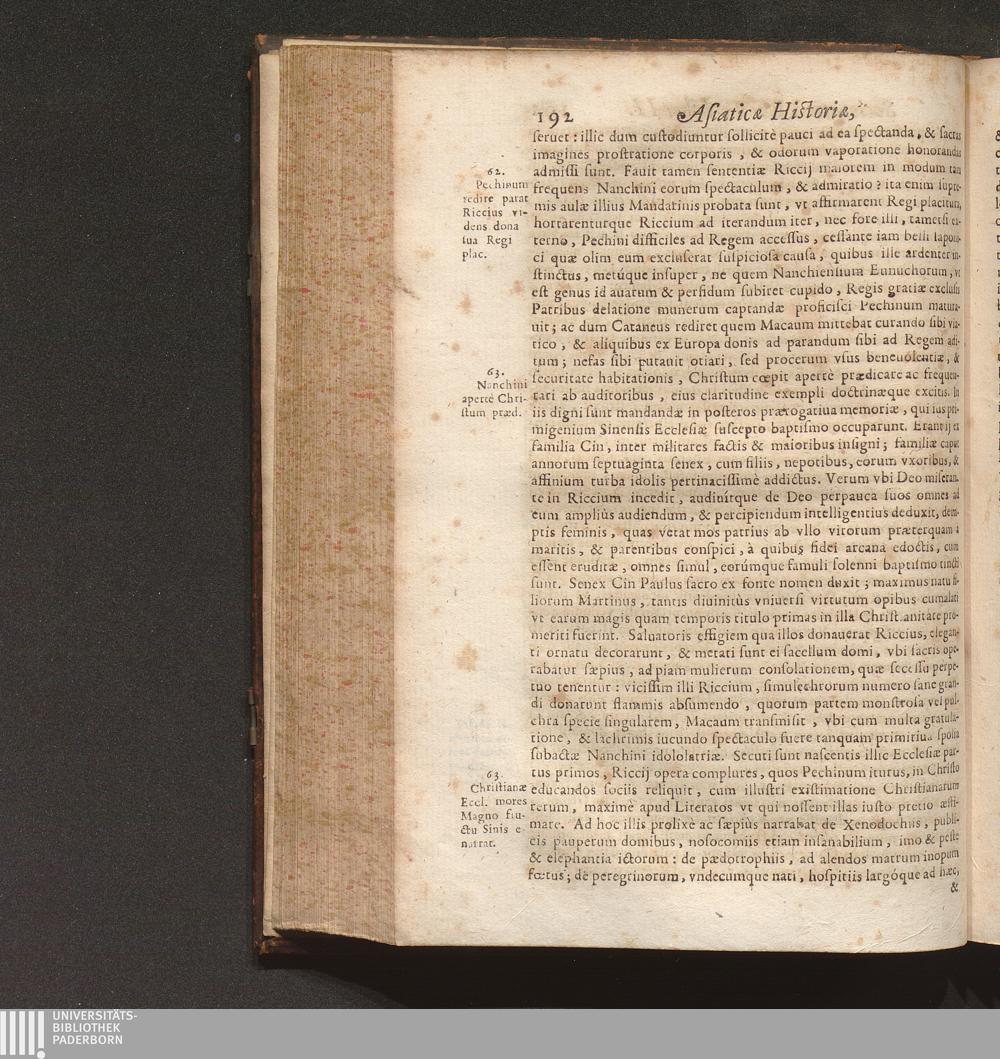 192 Asiaticæ Historiæ,
seruet : illic dum custodiuntur sollicitè pauci ad ea spectanda, & sacras
imagines prostratione corporis , & odorum vaporatione honorandas
admissi sunt. Fauit tamen sententiæ Riccij maiorem in modum tam
frequens Nanchini eorum spectaculum , & admiratio ? ita enim supre-
mis aulæ illius Mandarinis probata sunt , vt affirmarent Regi placitura,
hortarenturque Riccium ad iterandum iter, nec fore illi , tametsi ex-
terno , Pechini difficiles ad Regem accessus , cessante iam belli Iapon-
ci quæ olim eum excluserat suspiciosa causa , quibus ille ardenter in-
stinctus , metúque insuper , ne quem Nanchiensium Eunuchorum , vt
est genus id auarum & perfidum subiret cupido , Regis gratiæ exclusis
Patribus delatione munerum captandæ proficisci Pechinum matura-
uit ; ac dum Cataneus rediret quem Macaum mittebat curando sibi via-
tico , & aliquibus ex Europa donis ad parandum sibi ad Regem adi-
tum ; nefas sibi putauit otiari , sed procerum vsus beneuolentiæ, &
securitate habitationis , Christum cœpit apertè prædicare ac frequen-
tari ab auditoribus , eius claritudine exempli doctrinæque excitis. In
iis digni sunt mandandæ in posteros prærogatiua memoriæ , qui ius pri-
migenium Sinensis Ecclesiæ suscepto baptismo occuparunt. Erant ij ex
familia Cin , inter militares factis & maioribus insigni ; familiæ caput
annorum septuaginta senex , cum filiis , nepotibus, eorum vxoribus, &
affinium turba idolis pertinacissimè addictus. Verum vbi Deo miseran-
te in Riccium incedit , audiuítque de Deo perpauca suos omnes ad
eum ampliùs audiendum , & percipiendum intelligentius deduxit, dem-
ptis feminis , quas vetat mos patrius ab vllo virorum præterquam à
maritis , & parentibus conspici , à quibus fidei arcana edoctis, cum
essent eruditæ , omnes simul , eorúmque famuli solenni baptismo tincti
sunt. Senex Cin Paulus sacro ex fonte nomen duxit ; maximus natu fi-
liorum Martinus , tantis diuinitùs vniuersi virtutum opibus cumulati
vt earum magis quam temporis titulo primas in illa Christianitate pro-
meriti fuerint. Saluatoris effigiem qua illos donauerat Riccius, elegan-
ti ornatu decorarunt , & metati sunt ei sacellum domi , vbi sacris ope-
rabatur sæpius , ad piam mulierum consolationem, quæ secessu perpe-
tuo tenentur : vicissim illi Riccium , simulachrorum numero sane gran-
di donarunt flammis absumendo , quorum partem monstrosa vel pul-
chra specie singularem , Macaum transmisit , vbi cum multa gratula-
tione , & lachrimis iucundo spectaculo fuere tanquam primitiua spolia
subactæ Nanchini idololatriæ. Secuti sunt nascentis illic Ecclesiæ par-
tus primos , Riccij opera complures , quos Pechinum iturus, in Christo
educandos sociis reliquit , cum illustri existimatione Christianarum
rerum , maximè apud Literatos vt qui nossent illas iusto pretio æsti-
mare. Ad hoc illis prolixè ac sæpiùs narrabat de Xenodochiis , publi-
cis pauperum domibus , nosocomiis etiam insanabilium , imo & peste
& elephantia ictorum : de pædotrophiis , ad alendos matrum inopum
fœtus ; de peregrinorum , vndecumque nati , hospitiis largóque ad hæc,
&
62.
Pechinum
redire parat
Riccius vi-
dens dona
sua Regi
plac.
63.
Nanchini
apertè Chri-
stum præd.
63.
Christianæ
Eccl. mores
Magno fru-
ctu Sinis e-
narrat.
UNIVERSITÄTS-
BIBLIOTHEK
PADERBORN